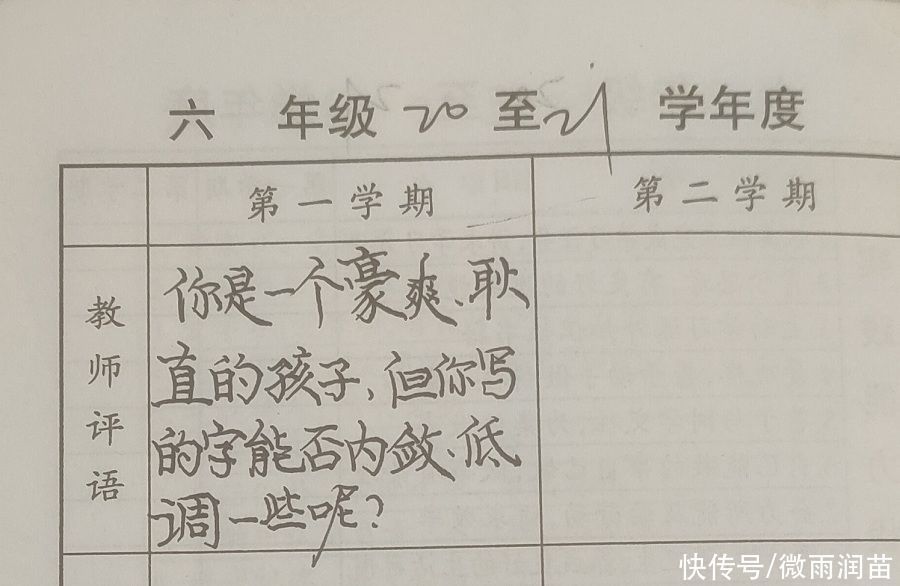 六 年级 20 至 21 学年度
第一学期 第二学期
教师评语
你是一个豪爽、耿
直的孩子,但你写
的字能否内敛、低
调一些呢?
快传号/微雨润苗